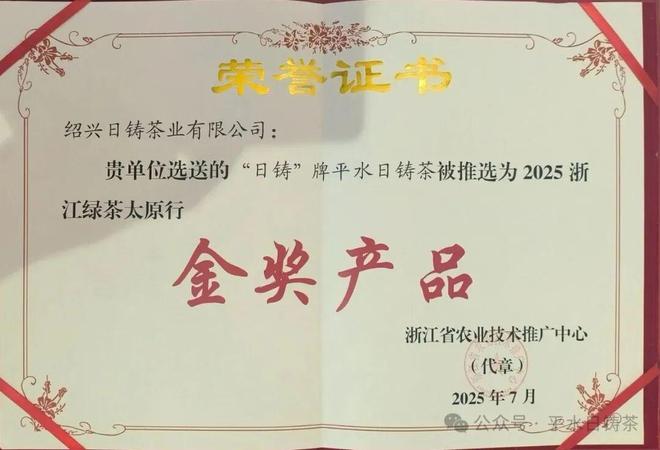 荣誉证书
绍兴日铸茶业有限公司：
贵单位选送的“日铸”牌平水日铸茶被推选为2025浙
江绿茶太原行
金奖产品
浙江省农业技术推广中心
（代章）
2025年7月
公众号·平水日铸茶